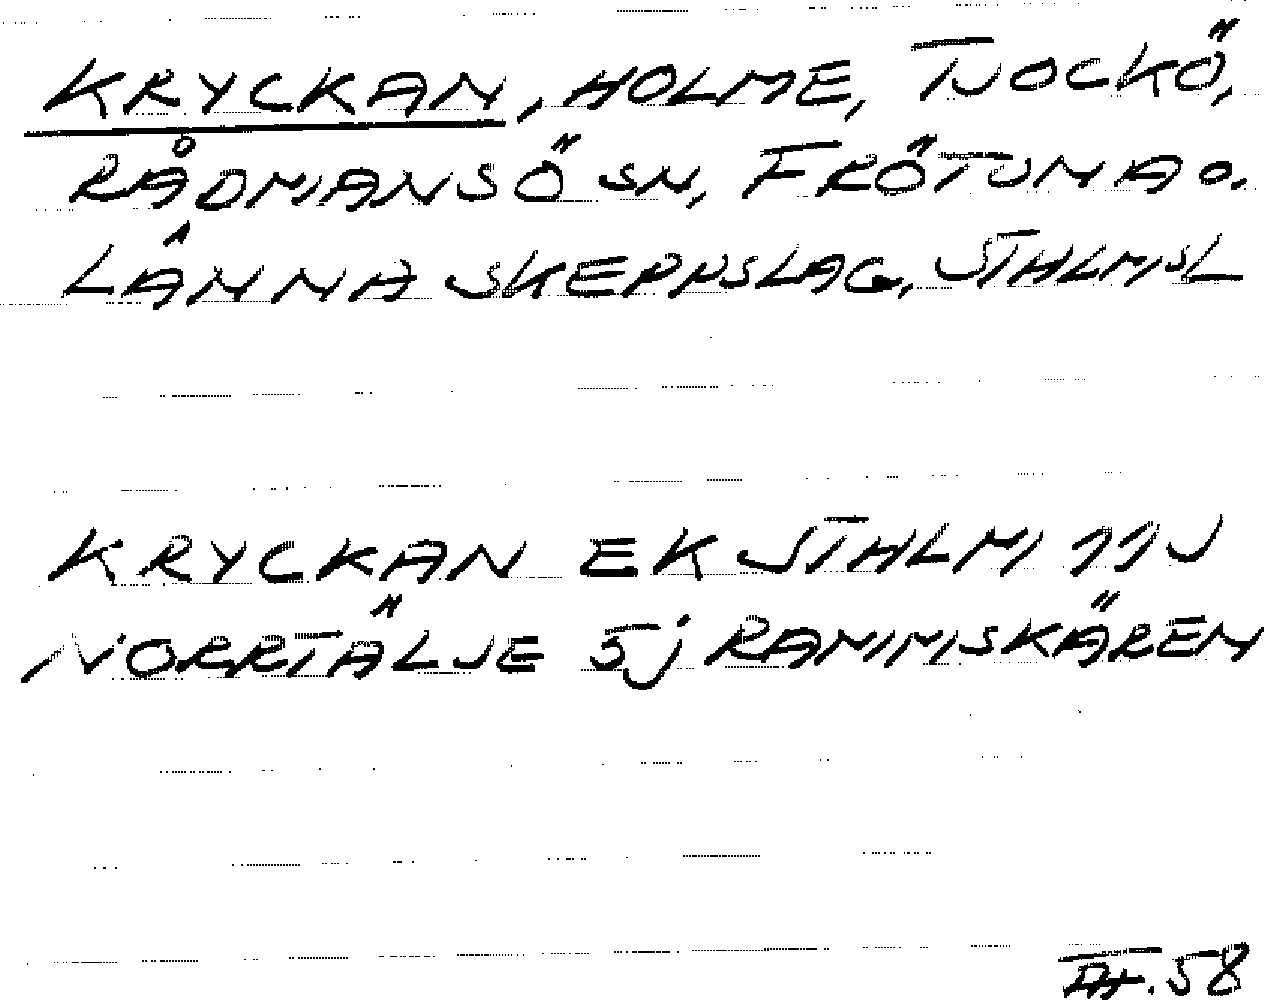 KRYCKAN, HOLME, TJOCKÖ,
RÅDMANSÖ SN, FRÖTUNA O.
LÄNNA SKEPPSLAG, STHLMSL
KRYCKAN EK STHLM 11J
NORRTÄLJE 5j RAMMSKÄREN
58